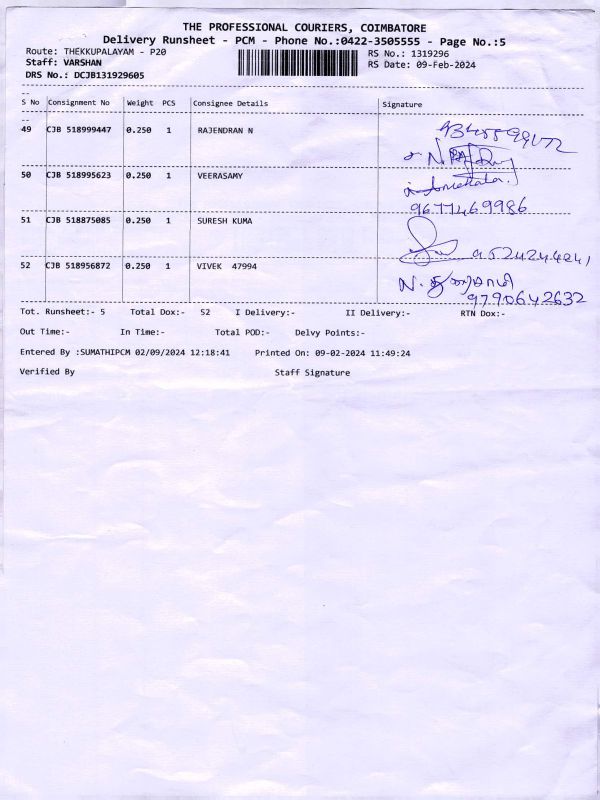 THE PROFESSIONAL COURIERS, COIMBATORE
Delivery Runsheet - PCM - Phone No.:0422-3505555 - Page No.:5
Route: THEKKUPALAYAM - P20 RS No.: 1319296
Staff: VARSHAN RS Date: 09-Feb-2024
DRS No.: DCJB131929605
S No Consignment No Weight PCS Consignee Details Signature
49 CJB 518999447 0.250 1 RAJENDRAN N
50 CJB 518995623 0.250 1 VEERASAMY
9677469986
51 CJB 518875085 0.250 1 SURESH KUMA
9524244241
52 CJB 518956872 0.250 1 VIVEK 47994
9790642632
Tot. Runsheet:- 5 Total Dox:- 52 I Delivery:- II Delivery:- RTN Dox:-
Out Time:- In Time:- Total POD:- Delvy Points:-
Entered By :SUMATHIPCM 02/09/2024 12:18:41 Printed On: 09-02-2024 11:49:24
Verified By Staff Signature